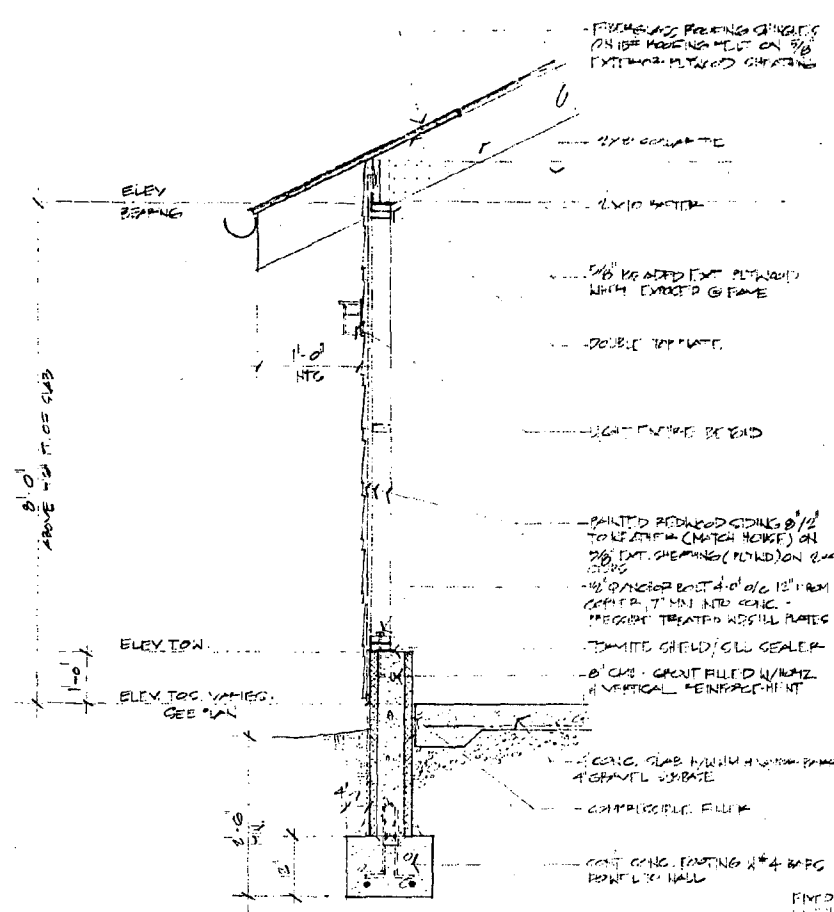 FIBERGLASS ROOFING SHINGLES
ON 15# ROOFING FELT ON 5/8"
EXTERIOR PLYWOOD SHEATHING
2X6 COLLAR TIE
ELEV
BEARING
2X10 RAFTER
5/8" BEADED EXT PLYWOOD
WHEN EXPOSED @ EAVE
DOUBLE TOP PLATE
1'-0"
LIGHT FIXTURE BEYOND
8'-0"
ABOVE HIGH PT. OF SLAB
PAINTED REDWOOD SIDING
TO WEATHER (MATCH HOUSE) ON
5/8" EXT. SHEATHING (PLYWD) ON
1/2" Ø ANCHOR BOLT 4'-0" O/C 12" FROM
CORNER, 7" MIN INTO CONC. -
PRESSURE TREATED WD SILL PLATES
ELEV TOW
TERMITE SHIELD/SILL SEALER
1'-0"
8" CMU - GROUT FILLED W/HORIZ
& VERTICAL REINFORCEMENT
ELEV TOS VARIES
SEE PLAN
CONC. SLAB
4" GRAVEL SUBBASE
4"
COMPRESSIBLE FILLER
2'-6"
12"
CONT CONC. FOOTING W #4 BARS
DOWEL TO WALL